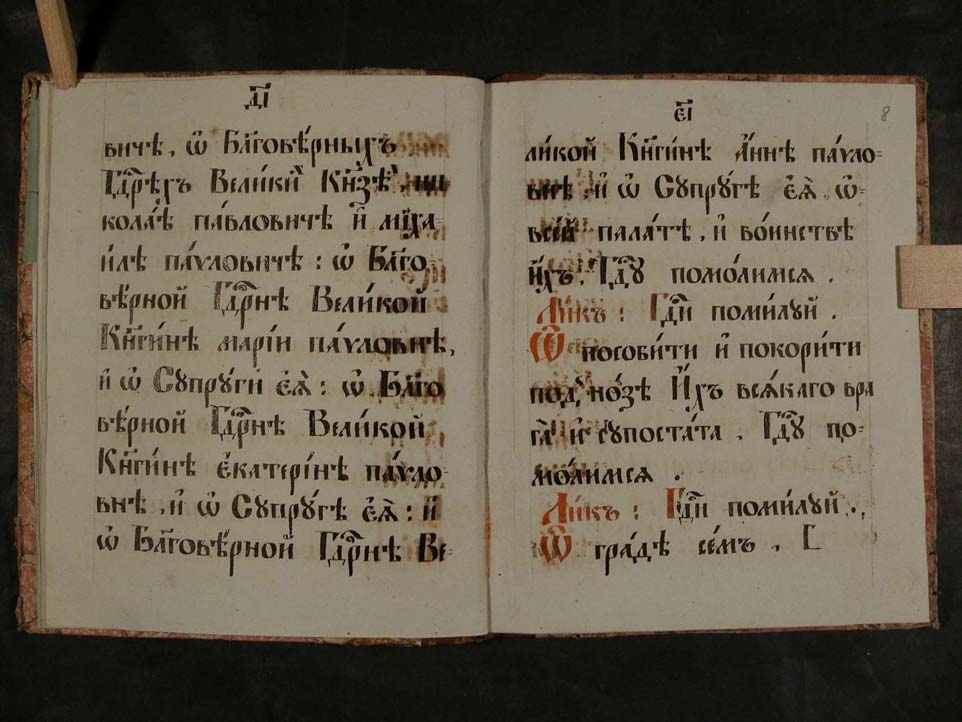 д҃і
вичѣ, ѡ҆ Бл҃говѣ́рныхъ
Гдⷭ҇рѣхъ Вели́ки Кн҃зѣ, ни
кола́ѣ па́вловичѣ и҆ миха
и́лѣ па́ѵловичѣ : ѡ҆ Бл҃го
вѣ́рной Гдⷭ҇рнѣ Вели́кой
Кн҃ги́нѣ марі́и па́ѵловнѣ,
и҆ ѡ҆ Сѹпрѹ́ги є҆ѧ̀ : ѡ҆ Бл҃го
вѣ́рной Гдⷭ҇рнѣ Вели́кой
Кн҃ги́нѣ є҆катери́нѣ па́ѵло
внѣ, и҆ ѡ҆ Сѹпрѹ́гѣ є҆ѧ̀ : и҆
ѡ҆ Бл҃говѣ́рной Гдⷭ҇рнѣ Ве-
є҃і
8
ли́кой Кн҃ги́нѣ А҆́ннѣ па́ѵло-
внѣ, и҆ ѡ҆ Сѹпрѹ́гѣ є҆ѧ̀. ѡ҆-
все́й пала́тѣ, и҆ во́инствѣ
и҆́хъ. Гдⷭ҇ѹ помо́лимсѧ.
Ли́къ : Гдⷭ҇и поми́лѹй.
Ѡ҆ пособи́ти и҆ покори́ти
под̾ но́зѣ И҆́хъ всѧ́каго вра
га̀ и҆ сѹпоста́та. Гдⷭ҇ѹ по-
мо́лимсѧ.
Ли́къ : Гдⷭ҇и поми́лѹй.
Ѡ҆ гра́дѣ се́мъ.